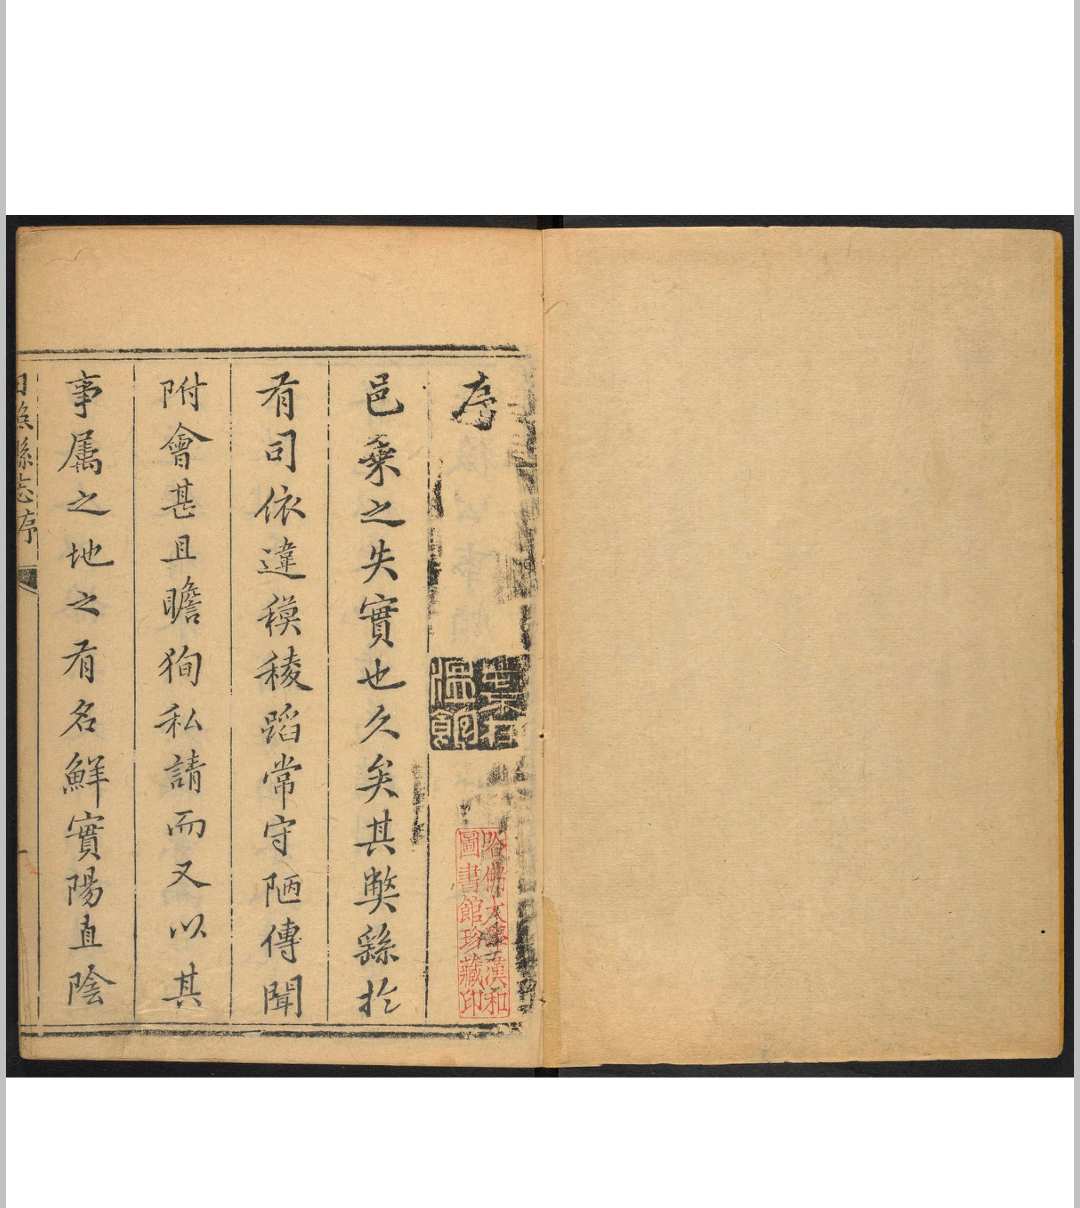 序
邑乗之失實也久矣其獘繇於
有司依違模稜蹈常守陋傳聞
附會甚且瞻狥私請而又以其
事属之地之有名鮮實陽直陰
縣志序
哈佛大學漢和
圖書館珍藏印